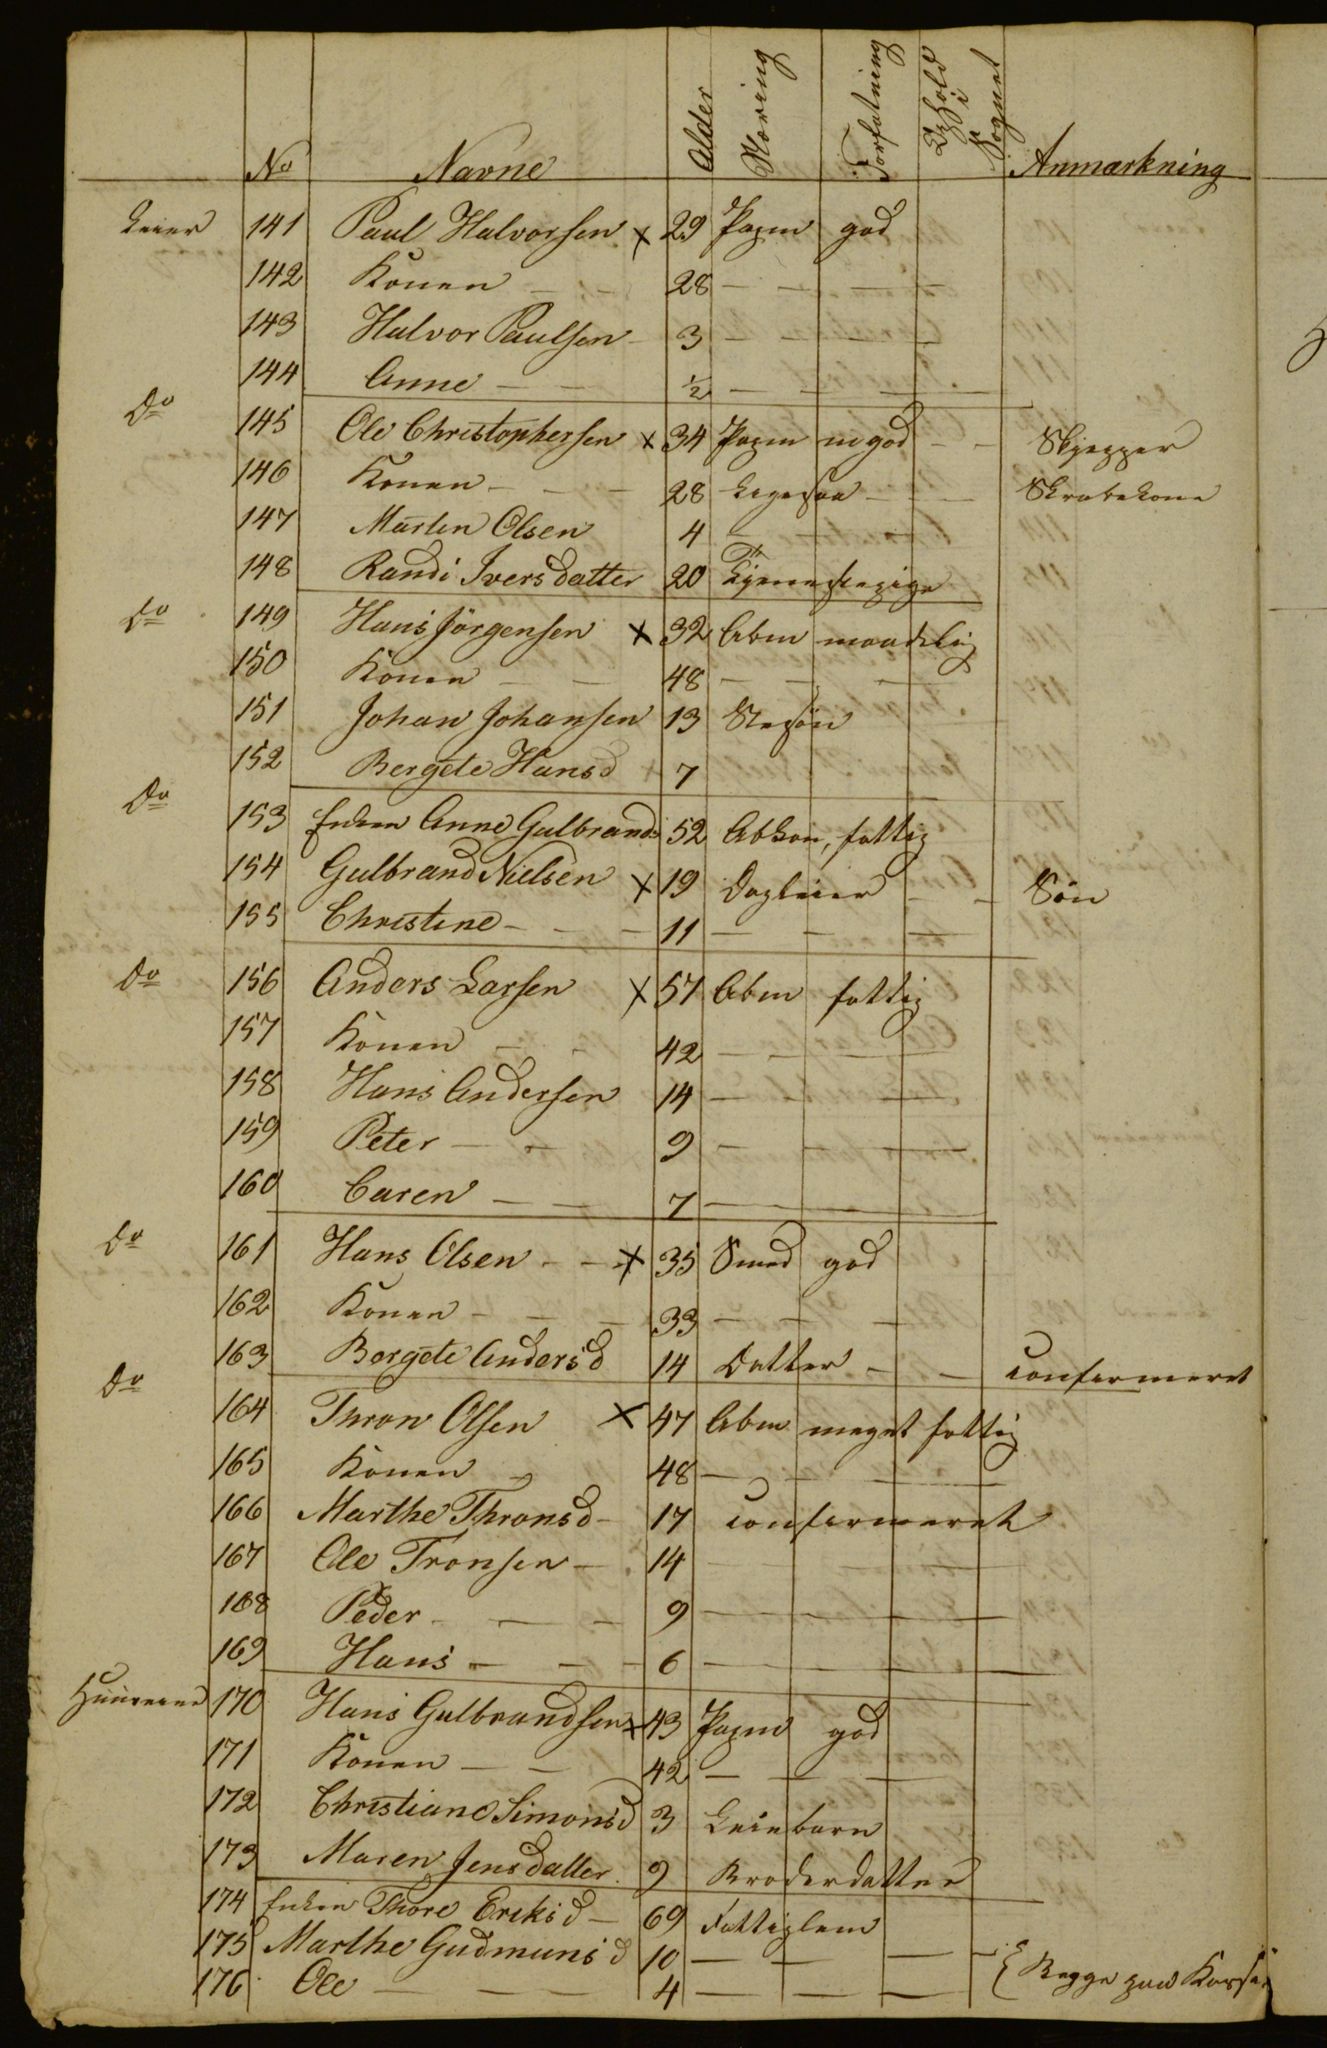 No Navne Alder Næring Forfatning Ophold i Sognet Anmærkning
Leier 141 Paul Halvorsen x 29 Papm god
142 Konen — — 28 — — — —
143 Halvor Paulsen — 3 — — — —
144 Anne — — ½ — — — —
Do 145 Ole Christophersen x 34 Papm m god — — Skjepper
146 Konen — — — 28 — — Skrabekone
147 Marten Olsen 4 — — —
148 Randi Iversdatter 20 Tjenestepige
Do 149 Hans Jörgensen x 32 Abm maadelig
150 Konen — — 48 — — — —
151 Johan Johansen 13 Stesön
152 Bergete Hansd 7
Do 153 Enken Anne Gulbrands 52 Abkon, fattig
154 Gulbrand Nielsen x 19 Dagleier — — Sön
155 Christine — — — 11 — — —
Do 156 Anders Larsen x 57 Abm fattig
157 Konen — — 42 — — — —
158 Hans Andersen 14 — — — —
159 Peter — — 9 — — — —
160 Caren — — 7 — — — —
Do 161 Hans Olsen — — x 35 Smed god
162 Konen — — — 33 — — —
163 Bergete Andersd 14 Datter — — confirmeret
Do 164 Thron Olsen x 47 Abm meget fattig
165 Konen — 48 — — — —
166 Marthe Thronsd — 17 confirmeret
167 Ole Tronsen — 14 — — — —
168 Peder — — — 9 — — — —
169 Hans — — — 6 — — — —
170 Hans Gulbrandsen x 43 Papm god
171 Konen — — 42 — — —
172 Christiane Simonsd 3 Leiebarn
173 Maren Jensdatter 9 Broderdatter
174 Enken Thore Eriksd — 69 Fattiglem
175 Marthe Gudmunsd 10 — — — —
176 Ole — — — 4 — — — { Begge paa